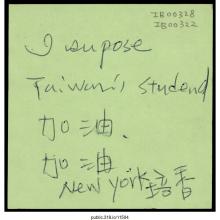 IB00328
IB00322
I supose
Taiwan's student
加油.
加油
New York 培香
public.318.io/11584